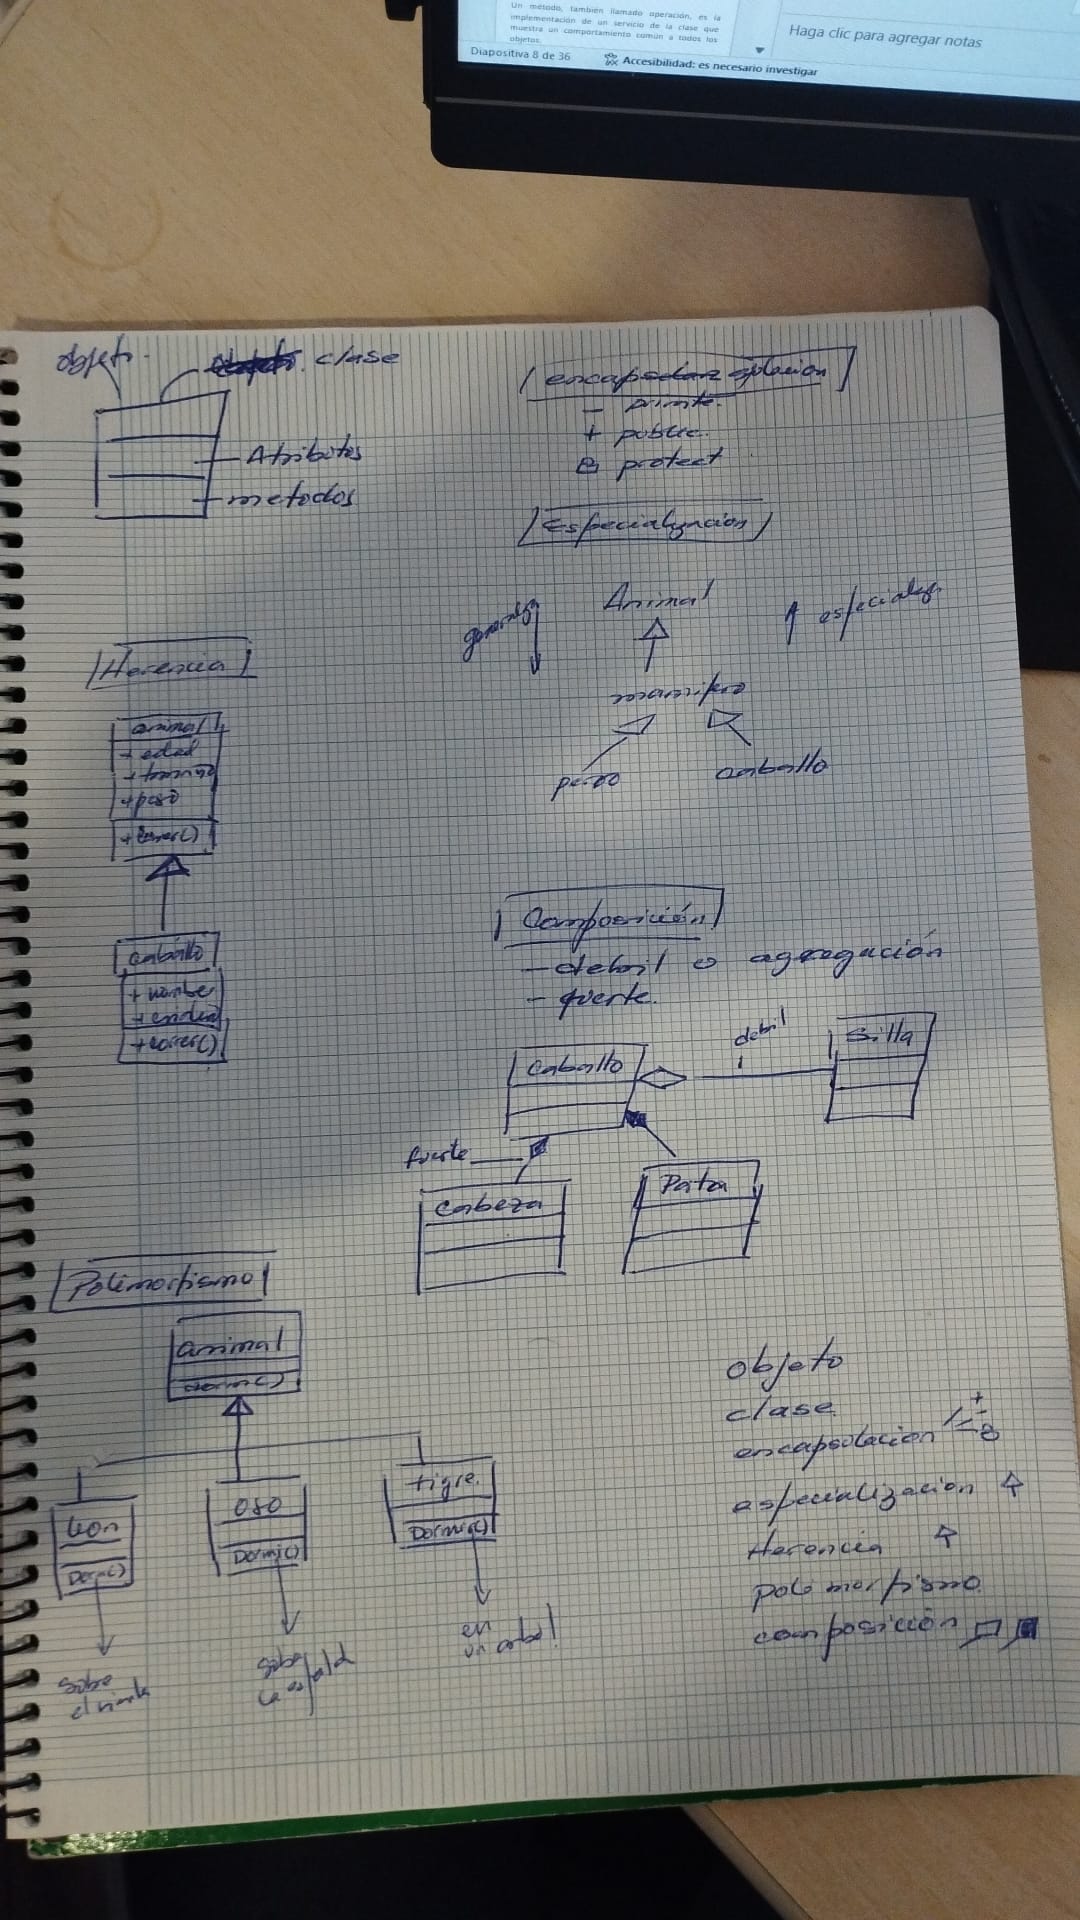 Un método, también llamado operación, es la
implementación de un servicio de la clase que
muestra un comportamiento común a todos los
objetos.
Haga clic para agregar notas
Diapositiva 8 de 36
Accesibilidad: es necesario investigar
objeto.
clase
Atributos
metodos
encapsulacion
-
+ public.
protect
Especialización
Animal
mamifero
perro
caballo
Herencia
animal
+ edad
+ peso
caballo
+ nombre
+ correr()
Composición
- debil o agregación
- fuerte.
Caballo
debil
Silla
fuerte
Cabeza
Pata
Polimorfismo
animal
Leon
oso
Dormi()
tigre.
Dormir()
sobre
sobre
en
un arbol
objeto
clase
encapsulacion
especializacion
Herencia
polimorfismo.
composición